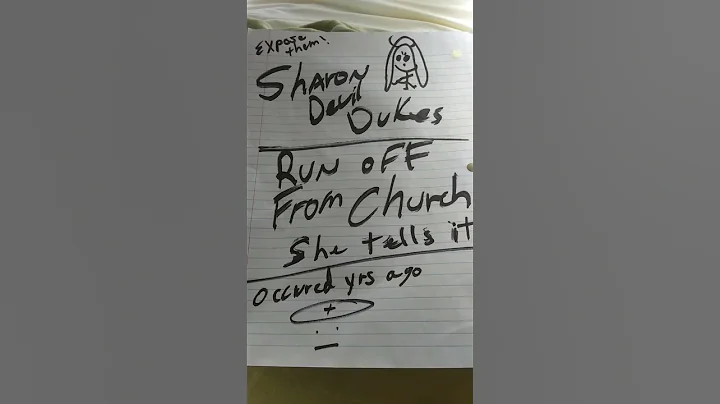 Expose
them!
Sharon
Devil
Dukes
Run off
From Church
She tells it
Occured yrs ago